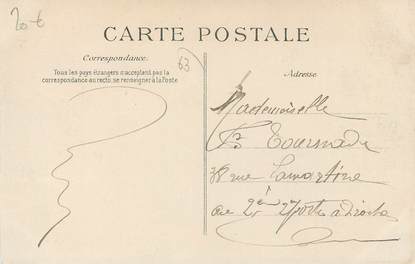 20 €
CARTE POSTALE
Correspondance.
63
Tous les pays étrangers n'acceptent pas la
correspondance au recto, se renseigner à la Poste
Adresse
Mademoiselle
Tournade
rue Lamartine
à
2